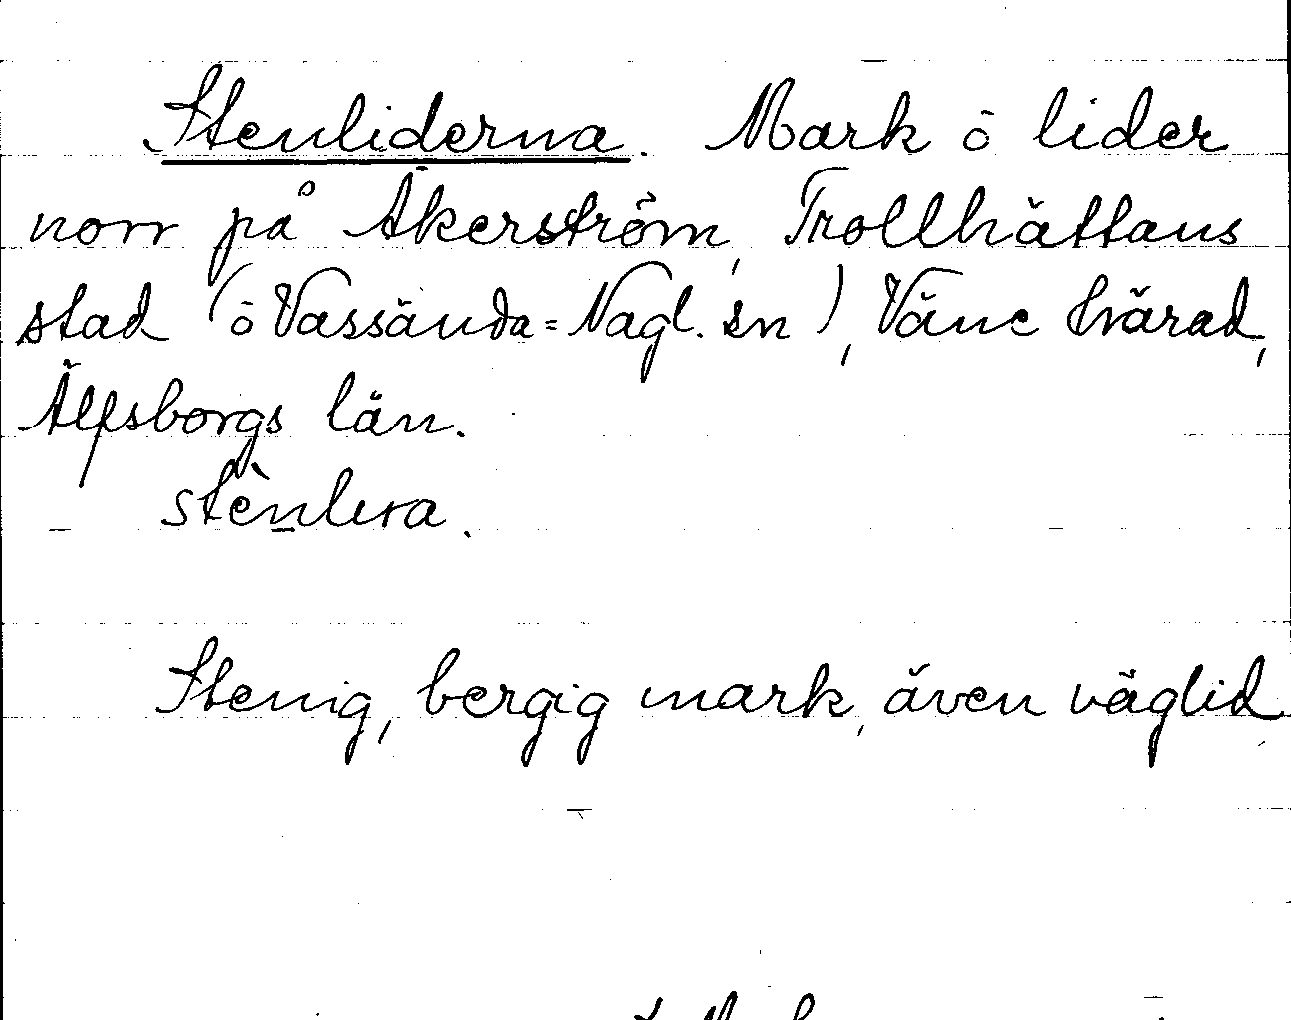 Stenliderna. Mark o lider
norr på Åkerström, Trollhättans
stad (o Vassända-Nagl. sn), Väne härad,
Älfsborgs län.
stènlira.
Stenig, bergig mark, även väglid